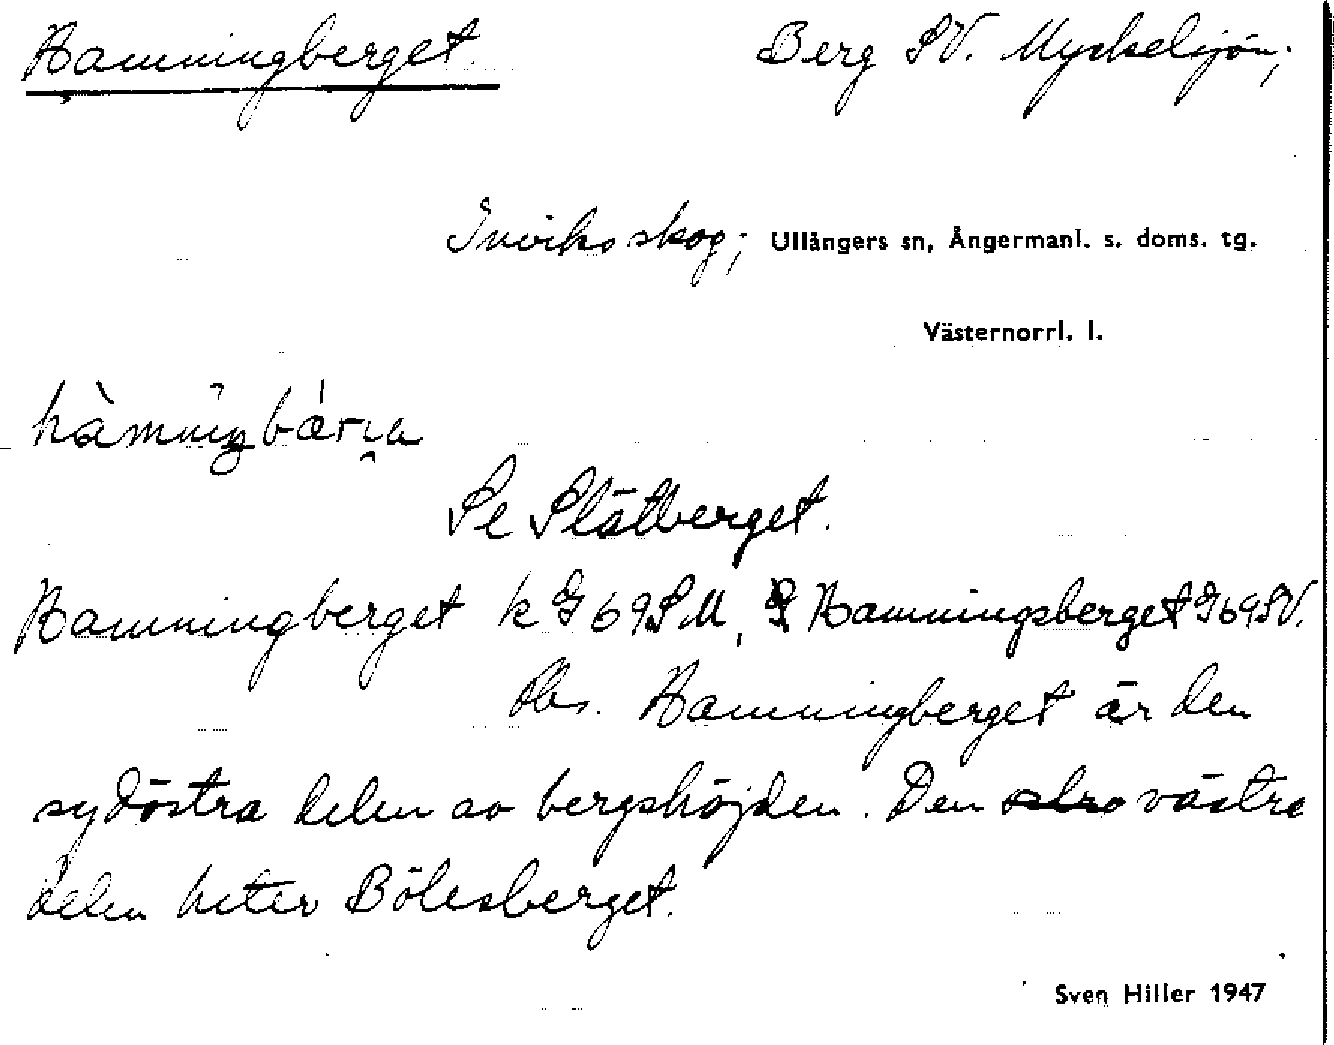 Hamningberget. Berg SV. Myckelsjön;
Inviks skog; Ullångers sn, Ångermanl. s. doms. tg.
Västernorrl. l.
hàmnıŋbárıa
Se Slåttberget.
Hamningberget k G 69 SM, Hamningsberget G69SV.
Obs. Hamningberget är den
sydöstra delen av bergshöjden. Den västra
delen heter Bölesberget.
Sven Hiller 1947